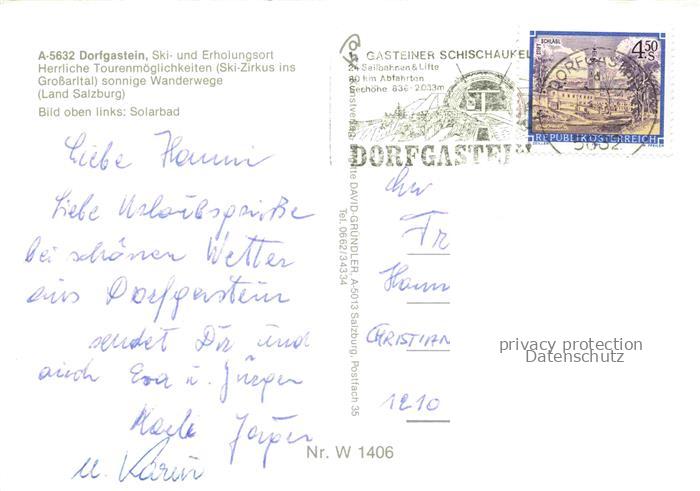 A-5632 Dorfgastein, Ski- und Erholungsort
Herrliche Tourenmöglichkeiten (Ski-Zirkus ins
Großarltal) sonnige Wanderwege
(Land Salzburg)
Bild oben links: Solarbad
Liebe Hanni
Liebe Urlaubsgrüße
bei schönen Wetter
aus Dorfgastein
sendet Dir und
auch Eva u. Jürgen
Jäger
u. Karin
DAVID-GRÜNDLER, A-5013 Salzburg, Postfach 35
Tel. 0662/34334
GASTEINER SCHISCHAUKEL
Seilbahnen & Lifte
80 km Abfahrten
Seehöhe 836-2033m
DORFGASTEIN
STIFT SCHLÄGL
4,50
S
REPUBLIK ÖSTERREICH
DORFGASTEIN
5632
Fr
Hann
CHRISTIAN
1210
privacy protection
Datenschutz
Nr. W 1406